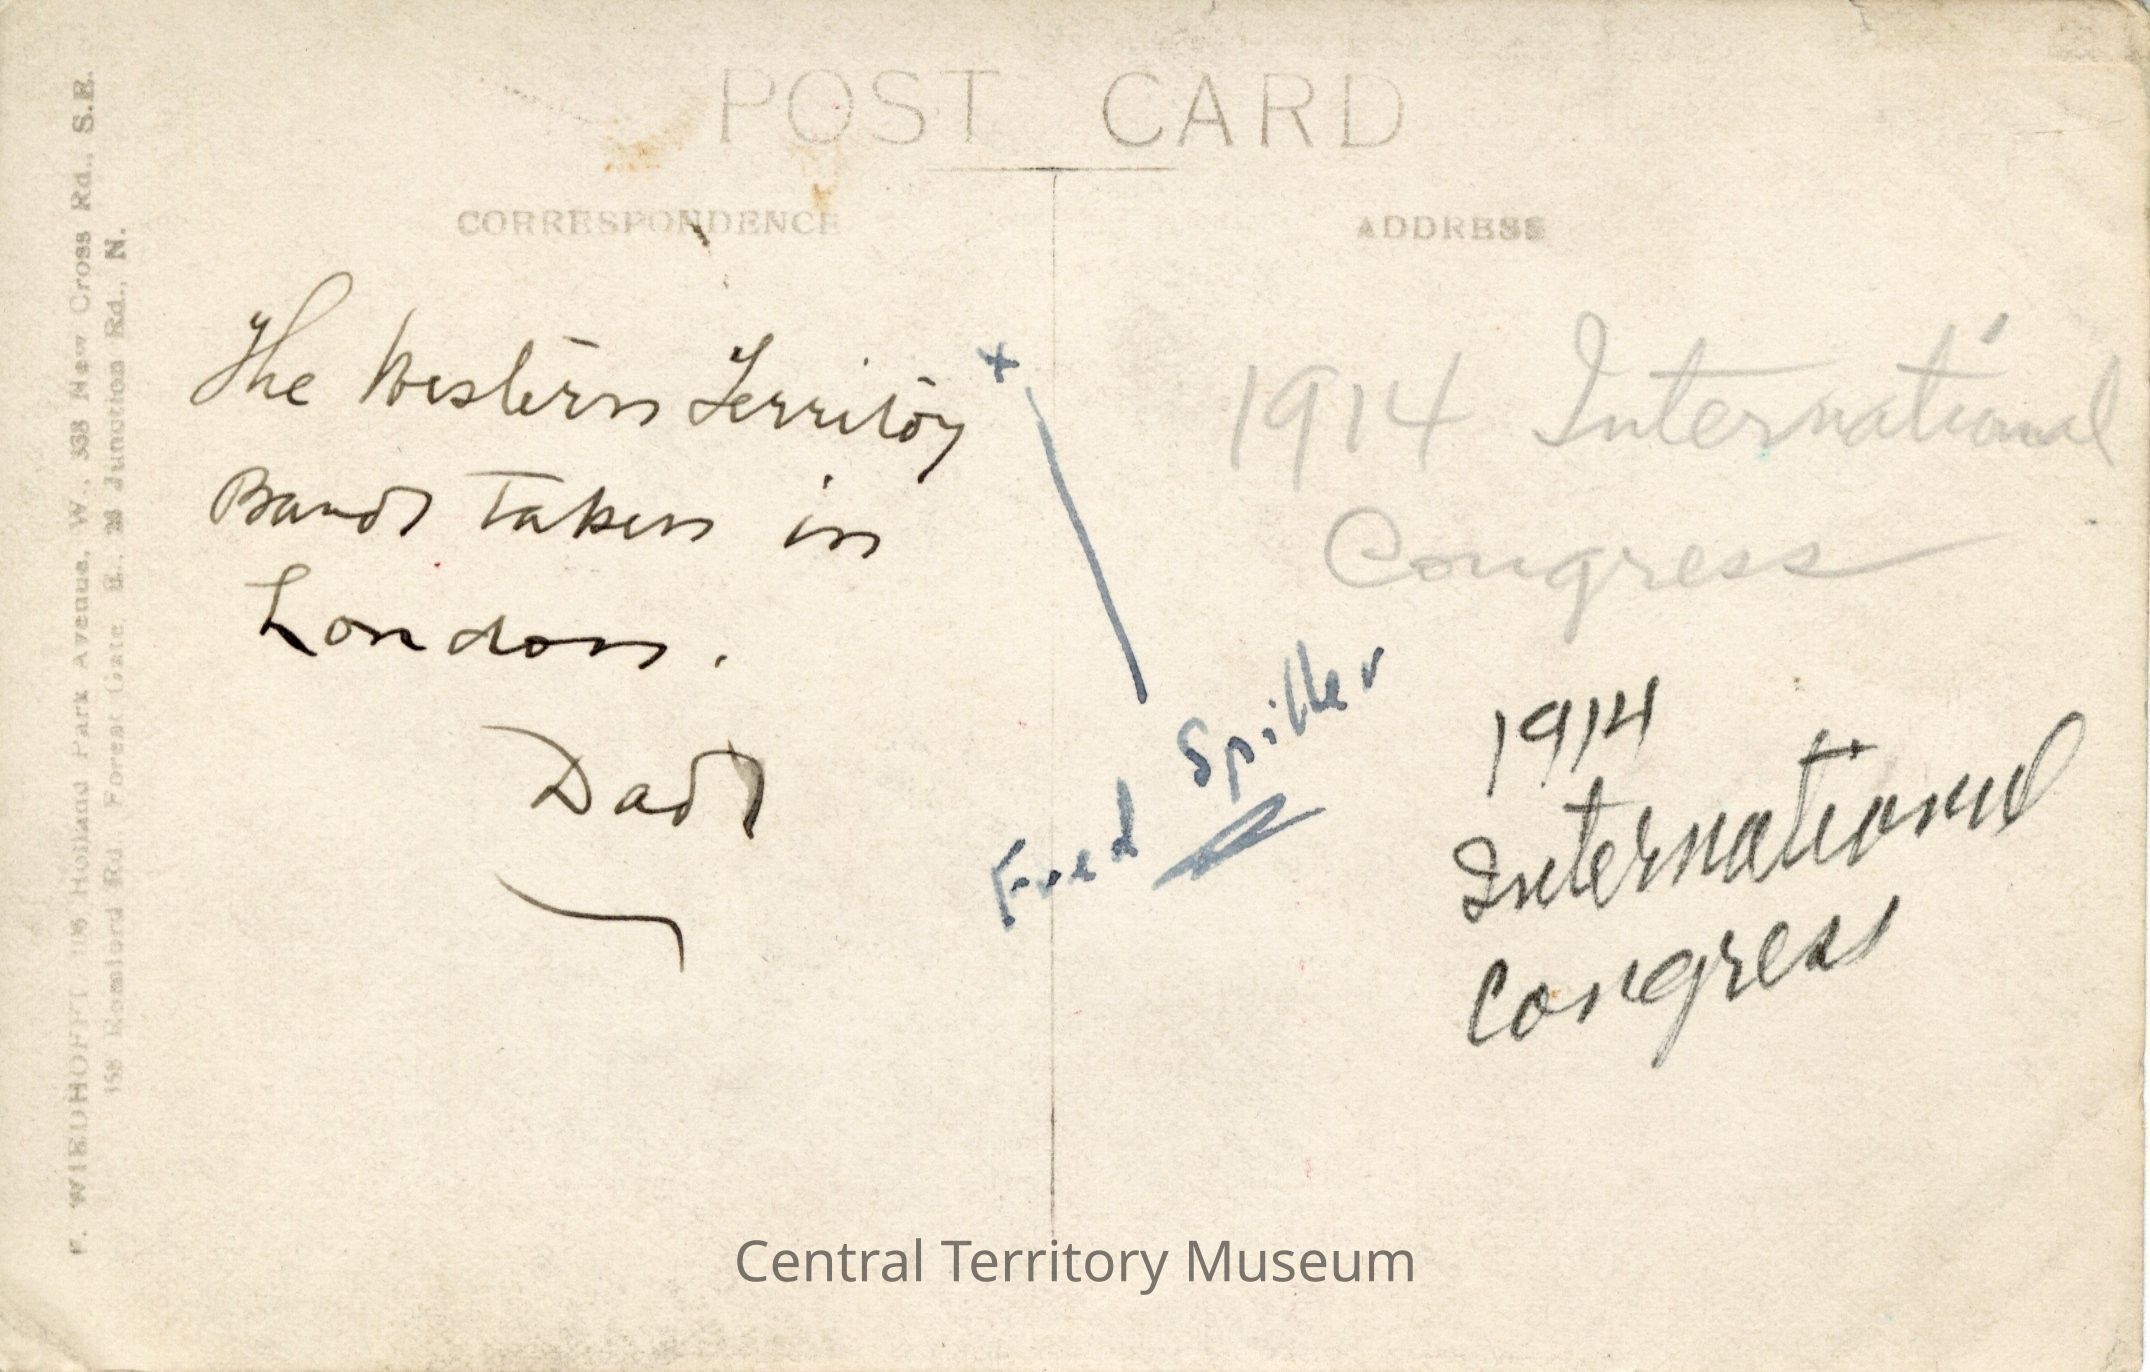 POST CARD
CORRESPONDENCE
ADDRESS
The Western Territory
Band taken in
London.
Dad
+
Fred Spiller
1914 International
Congress
1914
International
Congress
F. WIEDHOFFT 106 Holland Park Avenue, W., 338 New Cross Rd., S.E.
158 Romford Rd Forest Gate E., 28 Junction Rd., N.
Central Territory Museum